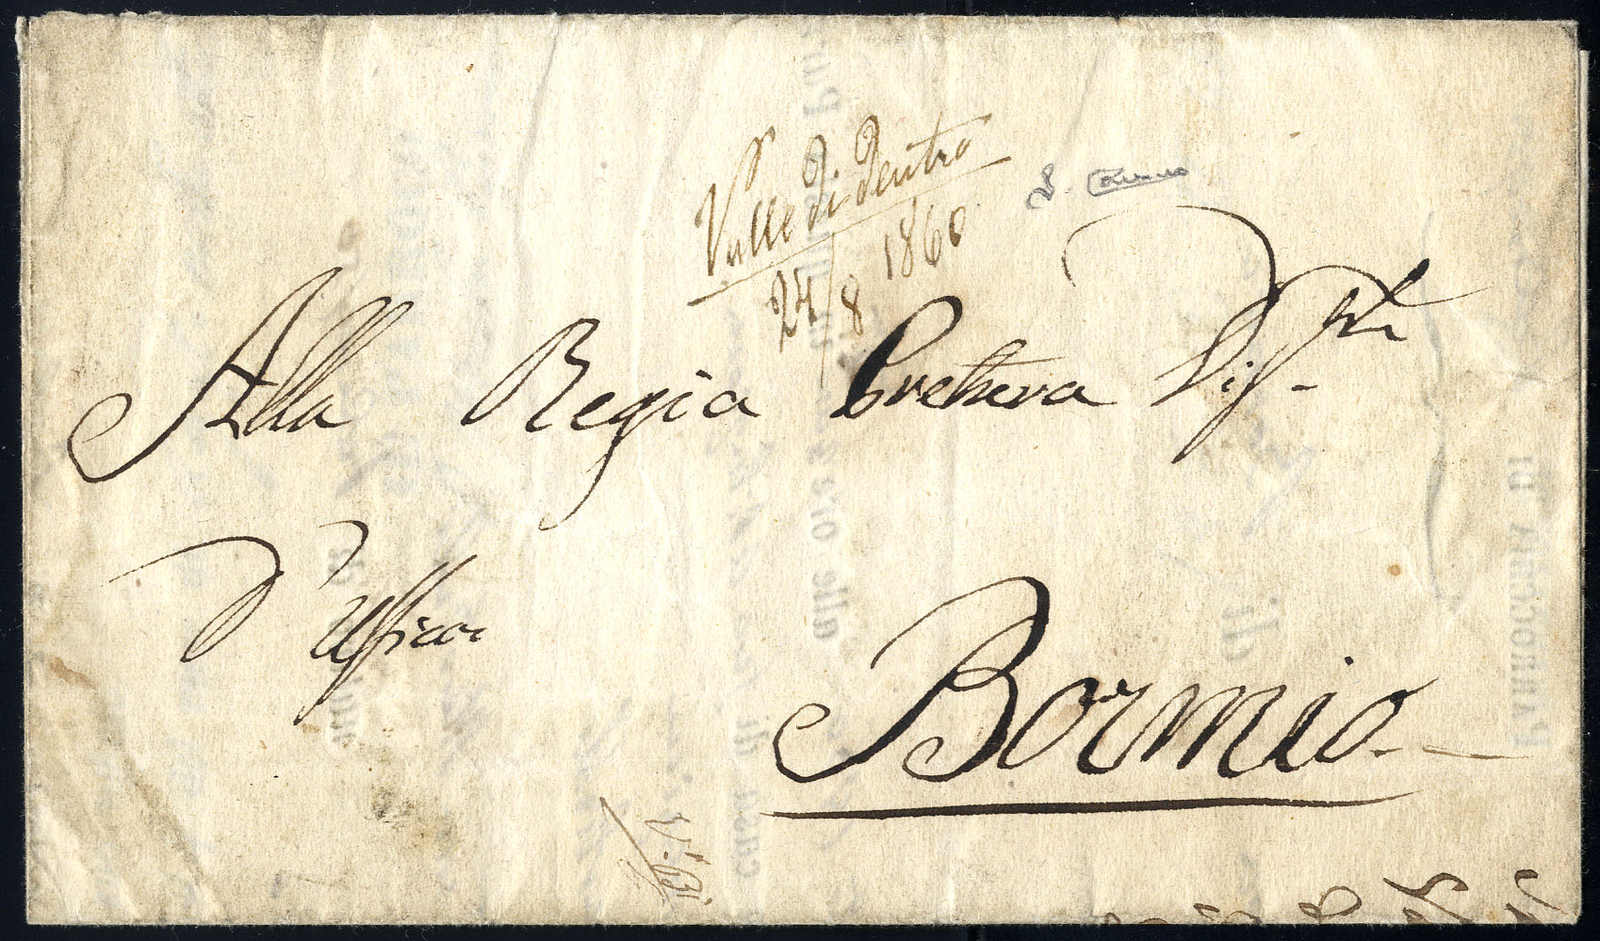 Valle di dentro
24/8 1860
Alla Regia Pretura
D'Ufficio
Bormio